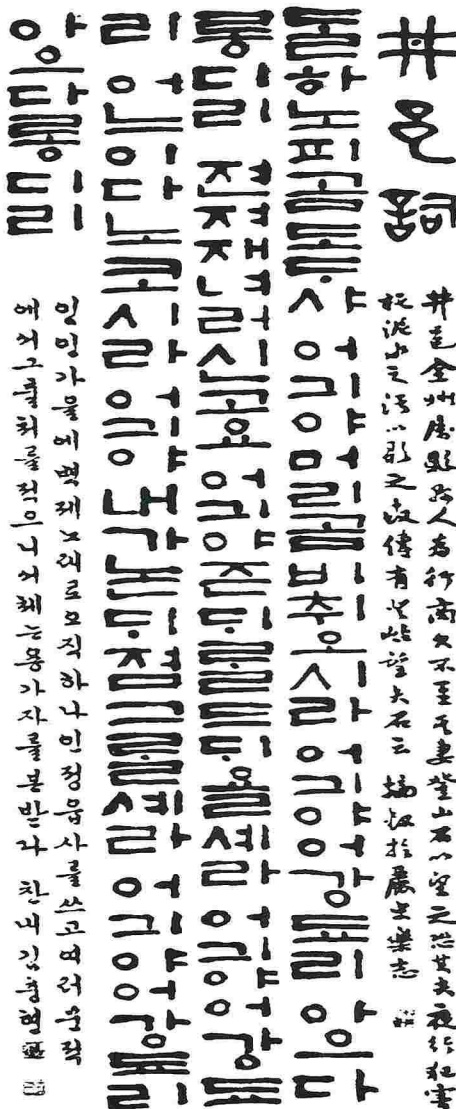 井邑詞
井邑全州屬縣縣人為行商久不至其妻登山石以望之恐其夫夜行犯害
托泥水之汚以歌之故傳有登岾望夫石云 摘敍於麗史樂志
ᄃᆞᆯ하노피곰도ᄃᆞ샤 어긔야머리곰비취오시라 어긔야어강됴리 아으다
롱디리 젼져재녀러신고요 어긔야즌ᄃᆡᄅᆞᆯ드ᄃᆡ욜셰라 어긔야어강됴
리 어느이다노코시라 어긔야내가논ᄃᆡ졈그ᄅᆞᆯ셰라 어긔야어강됴리
아으다롱디리
임인가을에백제노래로오직하나인정읍사를쓰고여러문적
에서 적으니서체는용가자를본받다 김충현